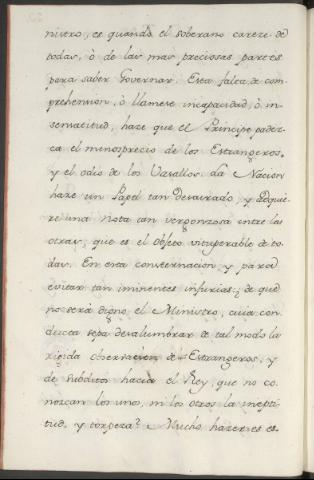 nivero, es quando el soberano careze de
todas, ò de las mas preciosas partes
para saber Governar. Esta falta de com-
prehension, ò llamese incapacidad, ò in-
sensatitud, haze que el Principe padez-
ca el menosprecio de los Estrangeros,
y el odio de los Vasallos. La Nacion
haze un Papel tan desairado, y adquie-
re una nota tan vergonzosa entre las
otras, que es el objeto vituperable de to-
das. En esta consternacion y para
evitar tan iminentes injurias; de que
no será digno el Ministro, cuia con-
ducta sepa deslumbrar de tal modo la
rigida observacion de Estrangeros, y
de subditos hacia el Rey, que no co-
nozcan los unos, ni los otros la inepti-
tud, y torpeza? Mucho hazer es es-